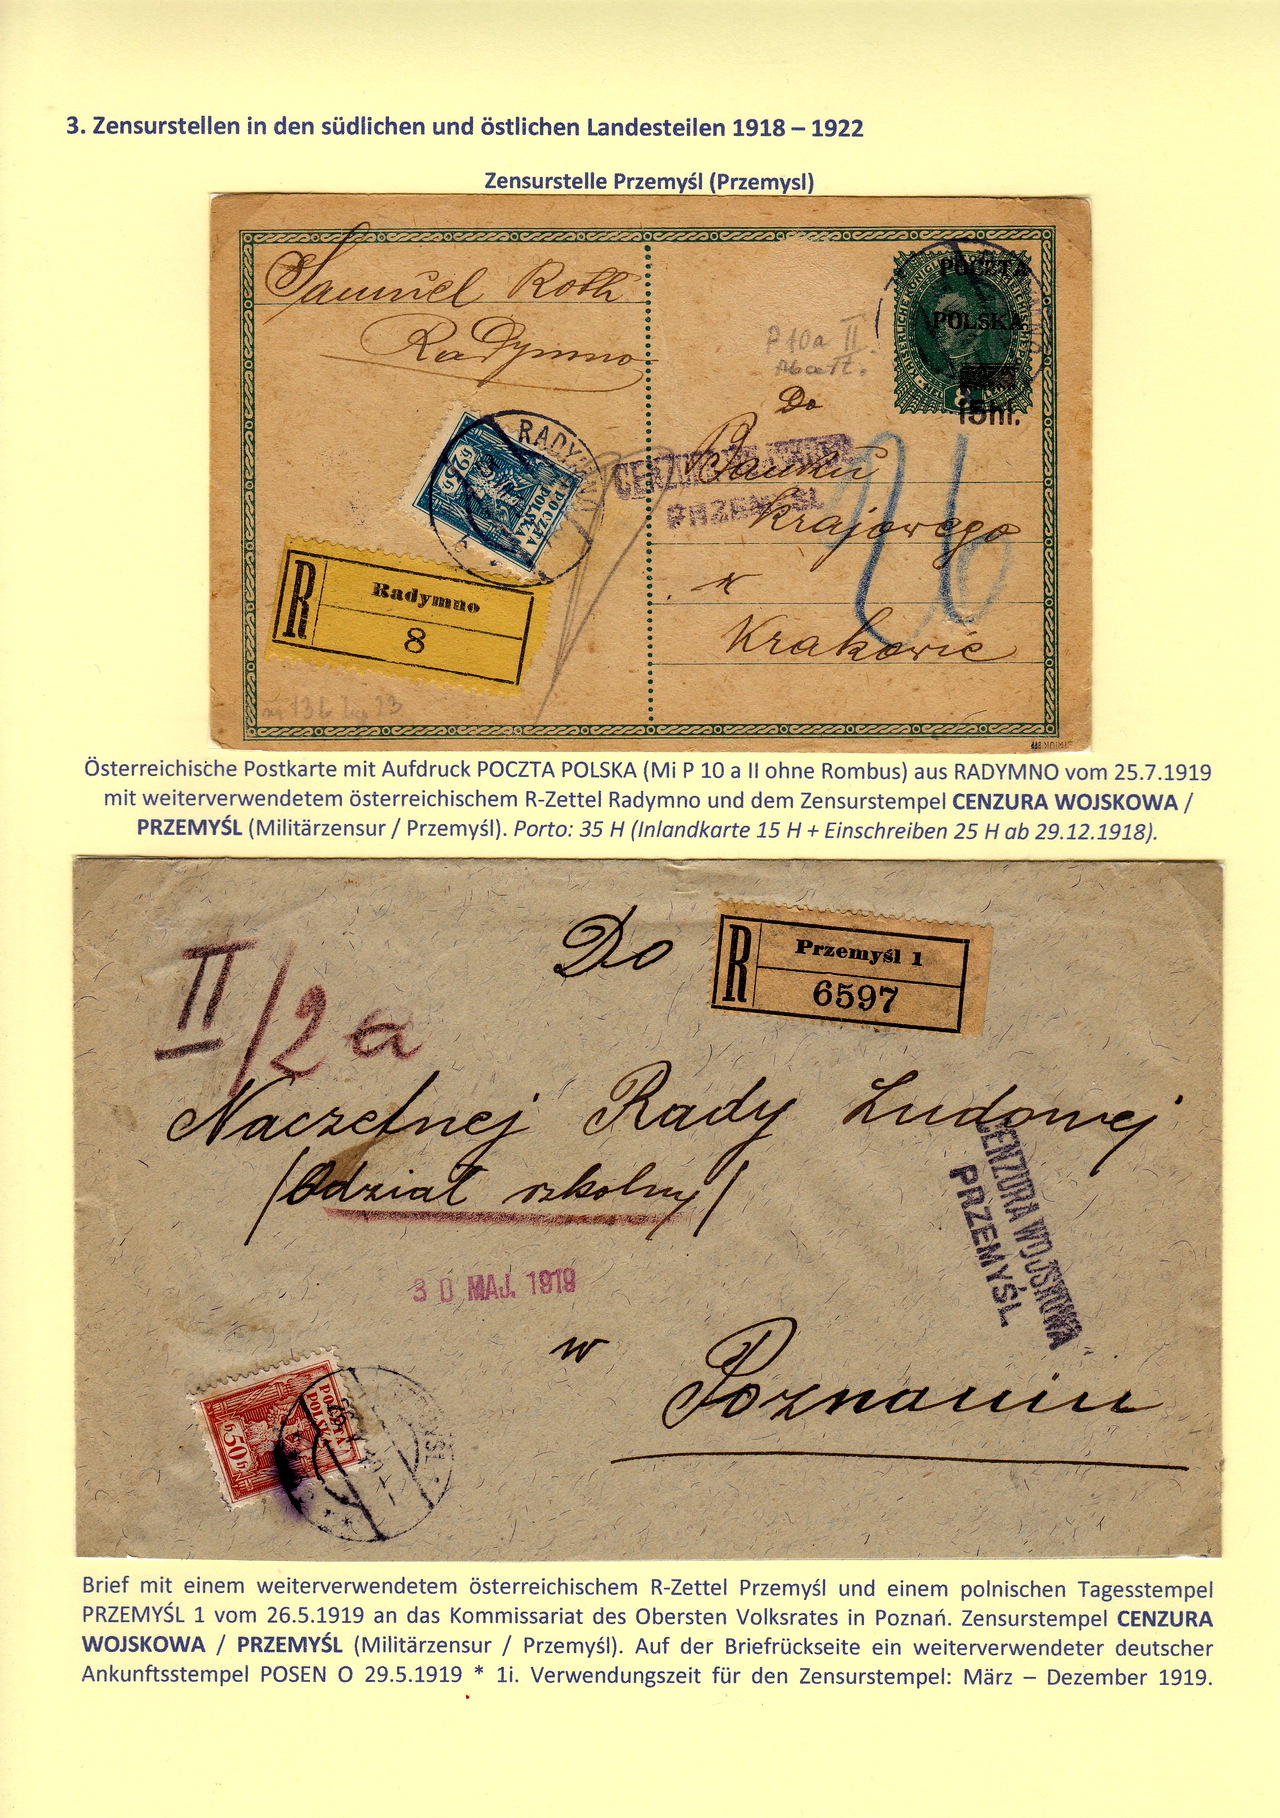 3. Zensurstellen in den südlichen und östlichen Landesteilen 1918 – 1922
Zensurstelle Przemyśl (Przemysl)
Samuel Roth
Radymno
POCZTA
POLSKA
15hl.
P 10a II.
Do
Banku
Krajowego
w
Krakowie
CENZURA WOJSKOWA
PRZEMYŚL
26
RADYMNO
25
POCZTA
POLSKA
R
Radymno
8
Österreichische Postkarte mit Aufdruck POCZTA POLSKA (Mi P 10 a II ohne Rombus) aus RADYMNO vom 25.7.1919
mit weiterverwendetem österreichischem R-Zettel Radymno und dem Zensurstempel CENZURA WOJSKOWA /
PRZEMYŚL (Militärzensur / Przemyśl). Porto: 35 H (Inlandkarte 15 H + Einschreiben 25 H ab 29.12.1918).
II/2a
Do
R
Przemyśl 1
6597
Naczelnej Rady Ludowej
(Odział szkolny)
CENZURA WOJSKOWA
PRZEMYŚL
30 MAJ. 1919
w
Poznaniu
POCZTA
POLSKA
50
Brief mit einem weiterverwendetem österreichischem R-Zettel Przemyśl und einem polnischen Tagesstempel
PRZEMYŚL 1 vom 26.5.1919 an das Kommissariat des Obersten Volksrates in Poznań. Zensurstempel CENZURA
WOJSKOWA / PRZEMYŚL (Militärzensur / Przemyśl). Auf der Briefrückseite ein weiterverwendeter deutscher
Ankunftsstempel POSEN O 29.5.1919 * 1i. Verwendungszeit für den Zensurstempel: März – Dezember 1919.